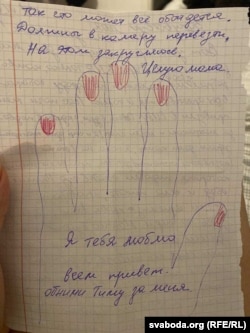 так сто может всё обойдется.
Должны в камеру перевезти.
На этом закругляюсь.
Целую мама.
Я тебя люблю
всем привет.
обними Тиму за меня
svaboda.org RFE/RL)